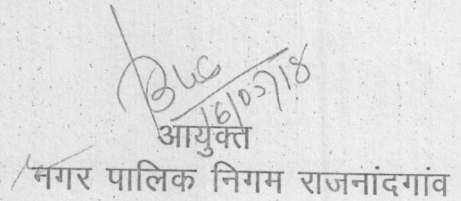 16/05/18
आयुक्त
नगर पालिक निगम राजनांदगांव